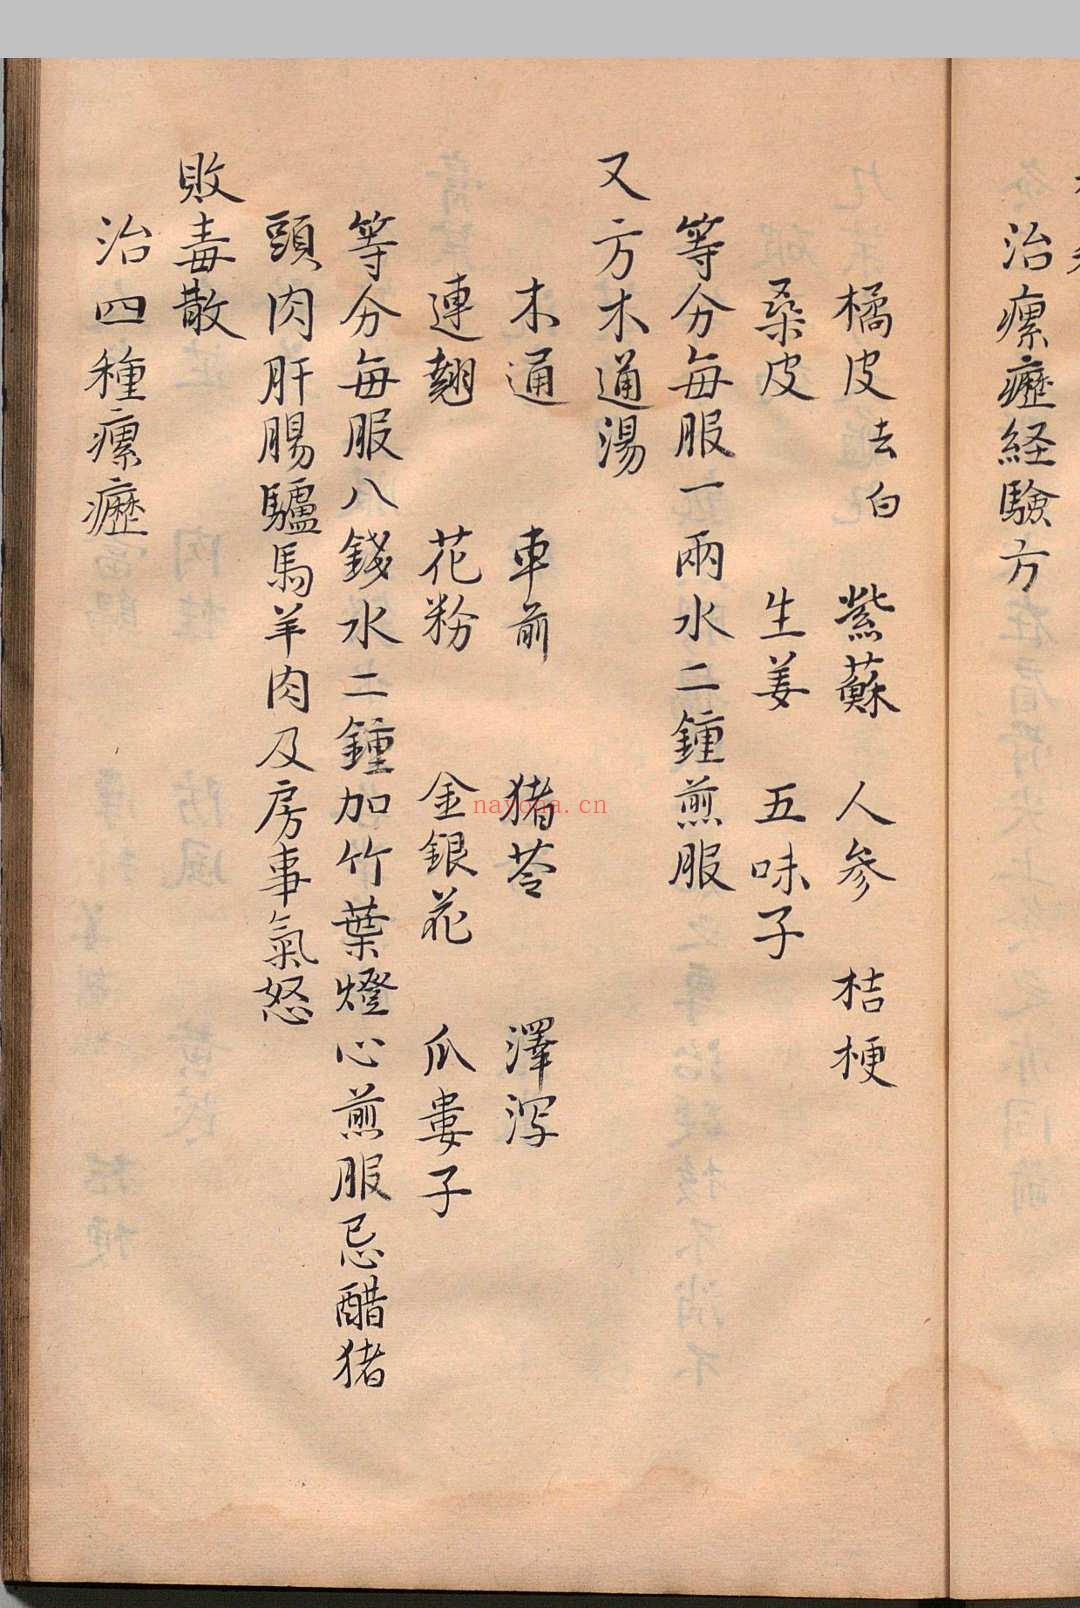 治瘰癧経驗方
橘皮去白 紫蘇 人參 桔梗
桑皮 生姜 五味子
等分每服一兩水二鍾煎服
又方木通湯
木通 車前 猪苓 澤泻
連翹 花粉 金銀花 瓜蔞子
等分每服八錢水二鍾加竹葉燈心煎服忌醋猪
頭肉肝腸驢馬羊肉及房事氣怒
敗毒散
治四種瘰癧
nayona.cn